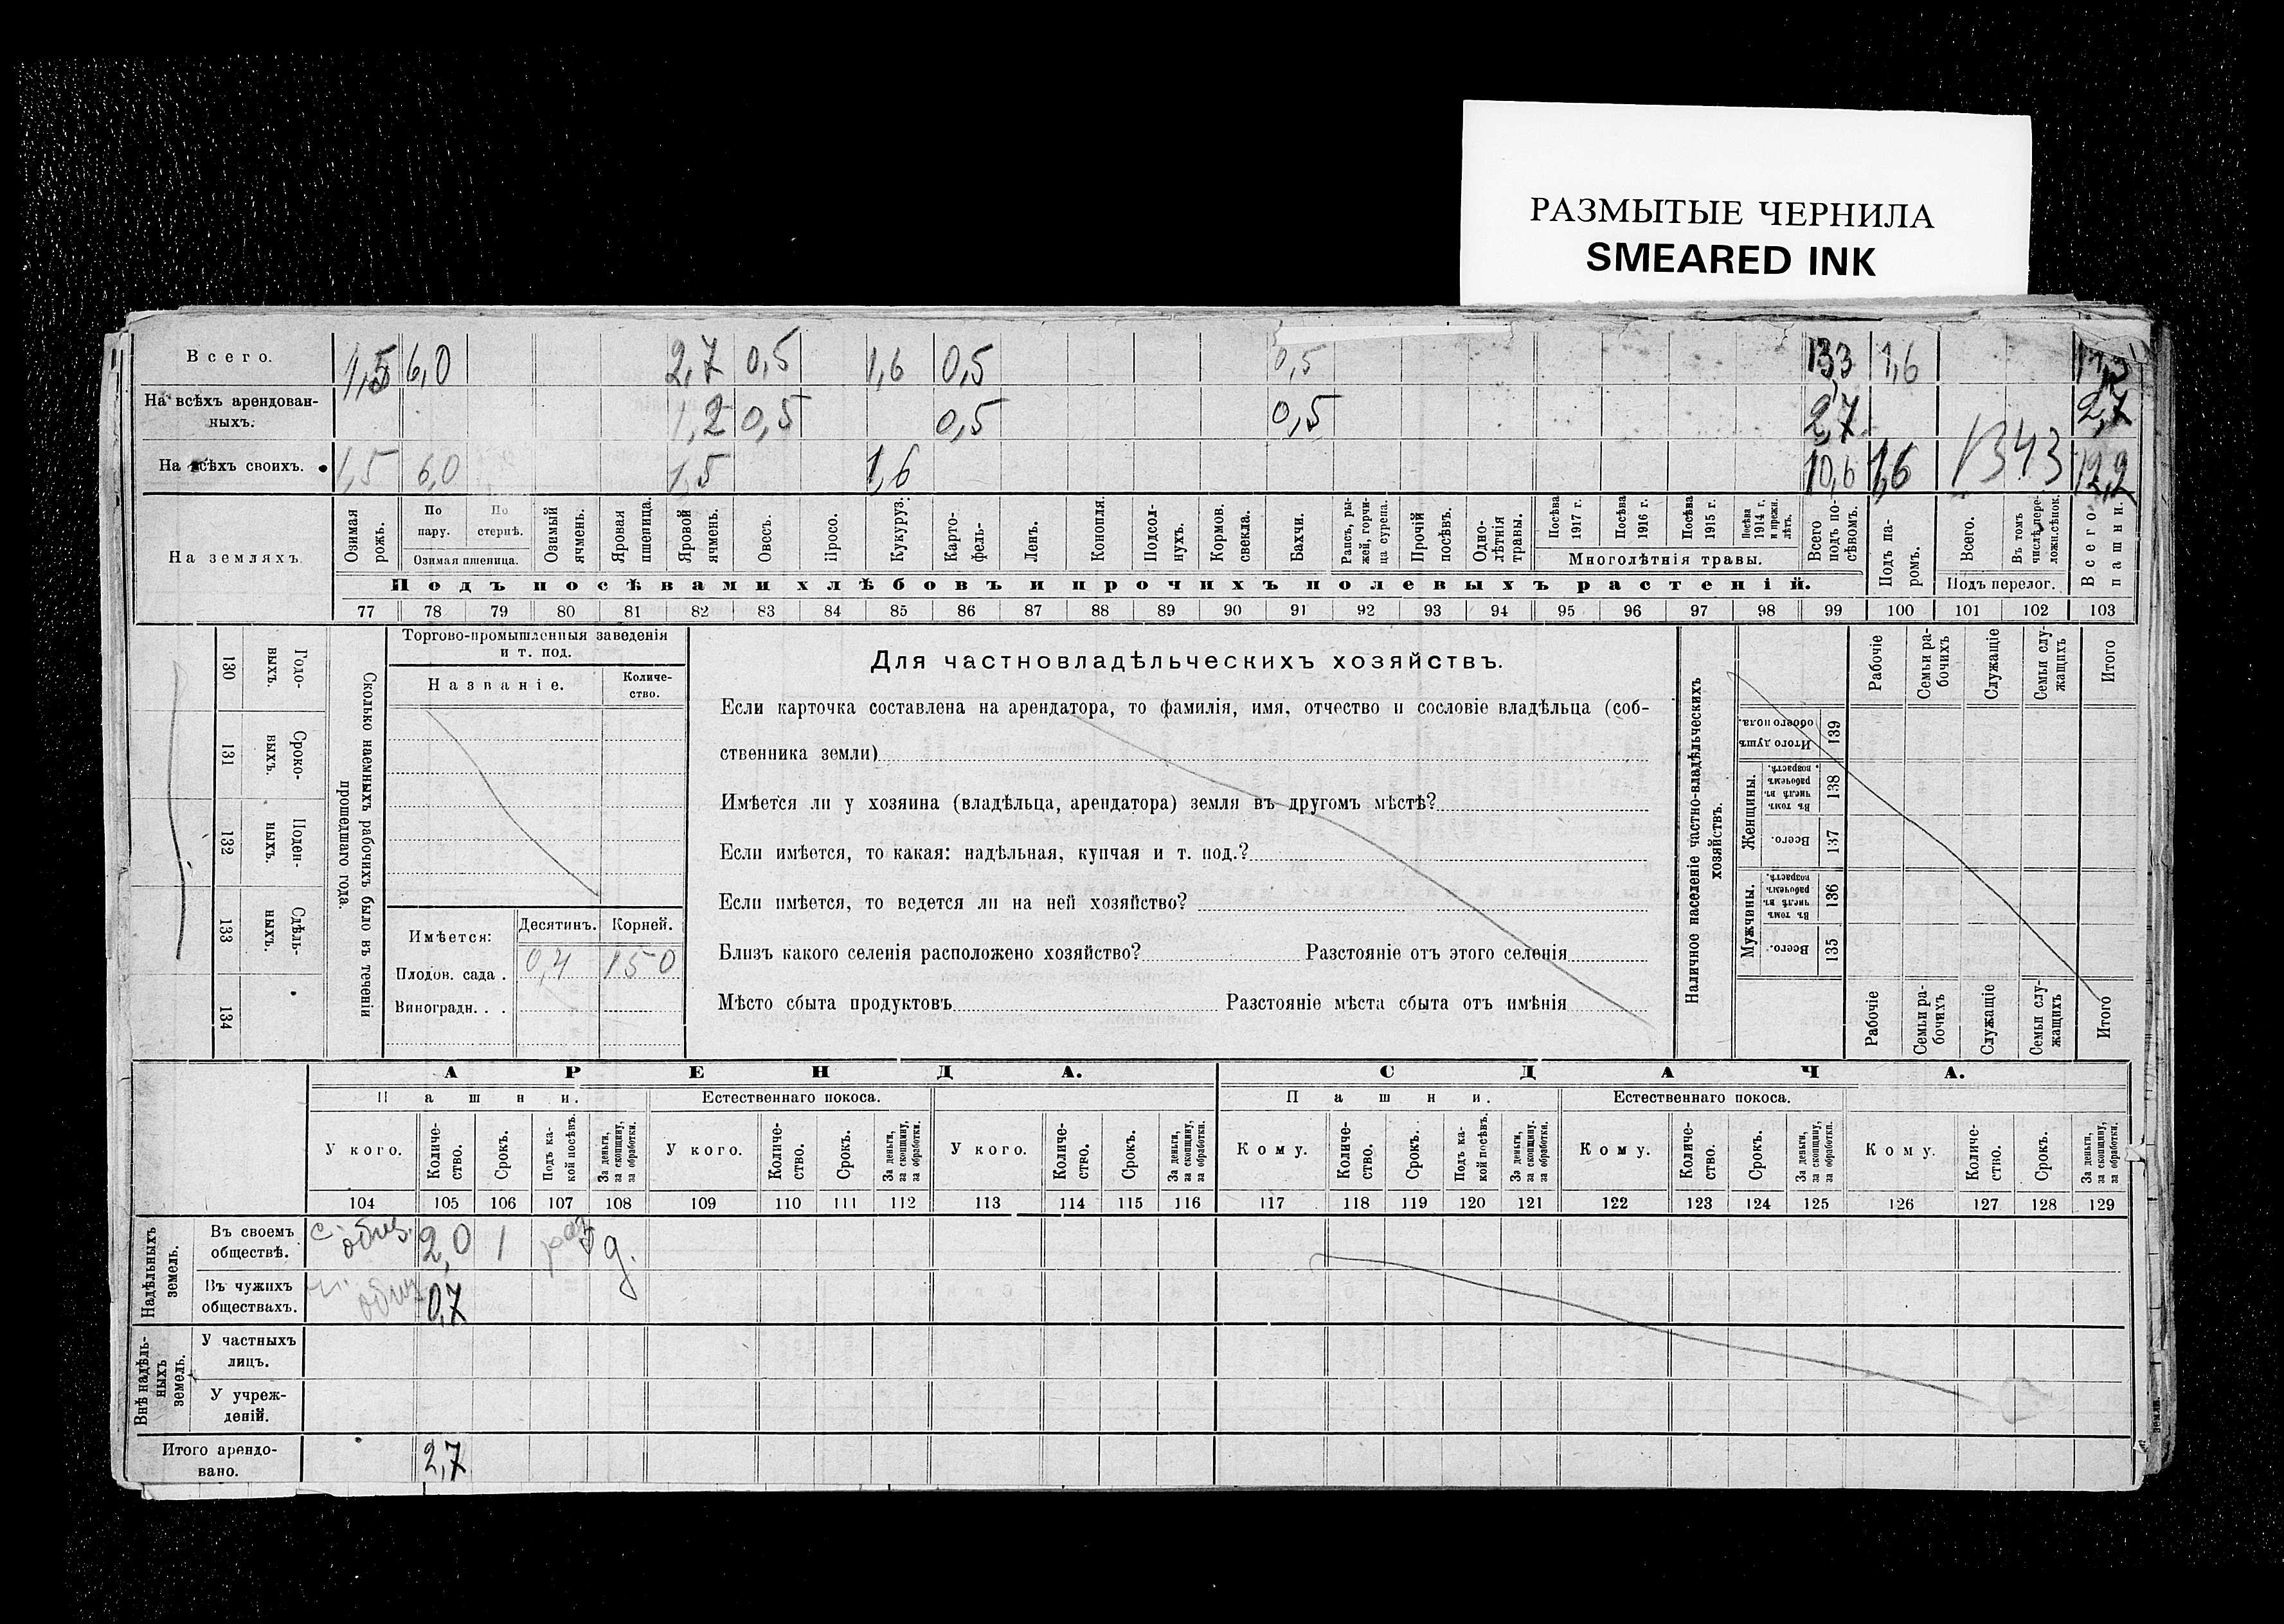 РАЗМЫТЫЕ ЧЕРНИЛА
SMEARED INK
Всего. 1,5 6,0 2,7 0,5 1,6 0,5 0,5 13,3 1,6
На всѣхъ арендован-
ныхъ. 1,2 0,5 0,5 0,5 2,7 2,7
На всѣхъ своихъ. 1,5 6,0 1,5 1,6 10,6 1,6 1343 12,2
На земляхъ.
Озимая рожь.
По пару.
По стернѣ.
Озимая пшеница.
Озимый ячмень.
Яровая пшеница.
Яровой ячмень.
Овесъ.
Просо.
Кукуруз.
Карто-
фель-
Ленъ.
Конопля.
Подсол-
нухъ.
Кормов. свекла.
Бахчи.
Рапсъ, ры-
жей, горчи-
ца сурепа.
Прочій посѣвъ.
Одно-
лѣтнія травы.
Посѣва 1917 г.
Посѣва 1916 г.
Посѣва 1915 г.
Посѣва 1914 г. и прежн. лѣтъ.
Многолѣтнія травы.
Всего подъ по-
сѣвомъ.
Подъ па-
ромъ.
Всего.
Въ томъ числѣ пере-
ложн. сѣнок.
Подъ перелог.
Всего пашни.
Подъ посѣвами хлѣбовъ и прочихъ полевыхъ растеній.
77 78 79 80 81 82 83 84 85 86 87 88 89 90 91 92 93 94 95 96 97 98 99 100 101 102 103
130 Годо-
выхъ.
131 Сроко-
выхъ.
132 Поден-
ныхъ.
133 Сдѣль-
ныхъ.
134
Сколько наемныхъ рабочихъ было въ теченіи
прошедшаго года.
Торгово-промышленныя заведенія
и т. под.
Названіе.
Количе-
ство.
Имѣется: Десятинъ. Корней.
Плодов. сада . 0,4 150
Виноградн. . .
Для частновладѣльческихъ хозяйствъ.
Если карточка составлена на арендатора, то фамилія, имя, отчество и сословіе владѣльца (соб-
ственника земли)
Имѣется ли у хозяина (владѣльца, арендатора) земля въ другомъ мѣстѣ?
Если имѣется, то какая: надѣльная, купчая и т. под.?
Если имѣется, то ведется ли на ней хозяйство?
Близъ какого селенія расположено хозяйство? Разстояніе отъ этого селенія
Мѣсто сбыта продуктовъ Разстояніе мѣста сбыта отъ имѣнія
Наличное населеніе частно-владѣльческихъ
хозяйствъ.
Рабочіе
Семьи ра-
бочихъ
Служащіе
Семьи слу-
жащихъ
Итого
Итого душъ обоего пола. 139
Женщины.
Въ томъ числѣ въ рабочемъ возрастѣ. 138
Всего. 137
Мужчины.
Въ томъ числѣ въ рабочемъ возрастѣ. 136
Всего. 135
Рабочіе
Семьи ра-
бочихъ
Служащіе
Семьи слу-
жащихъ
Итого
АРЕНДА. СДАЧА.
Пашни. Естественнаго покоса. Пашни. Естественнаго покоса.
У кого. Количе-
ство. Срокъ. Подъ ка-
кой посѣвъ. За деньги, за скопщину, за обработки.
У кого. Количе-
ство. Срокъ. За деньги, за скопщину, за обработки.
У кого. Количе-
ство. Срокъ. За деньги, за скопщину, за обработки.
Кому. Количе-
ство. Срокъ. Подъ ка-
кой посѣвъ. За деньги, за скопщину, за обработки.
Кому. Количе-
ство. Срокъ. За деньги, за скопщину, за обработки.
Кому. Количе-
ство. Срокъ. За деньги, за скопщину, за обработки.
104 105 106 107 108 109 110 111 112 113 114 115 116 117 118 119 120 121 122 123 124 125 126 127 128 129
Надѣльныхъ
земель.
Въ своемъ
обществѣ. 2,0 1 д.
Въ чужихъ
обществахъ. 0,7
Внѣ надѣль-
ныхъ
земель.
У частныхъ
лицъ.
У учреж-
деній.
Итого арендо-
вано. 2,7